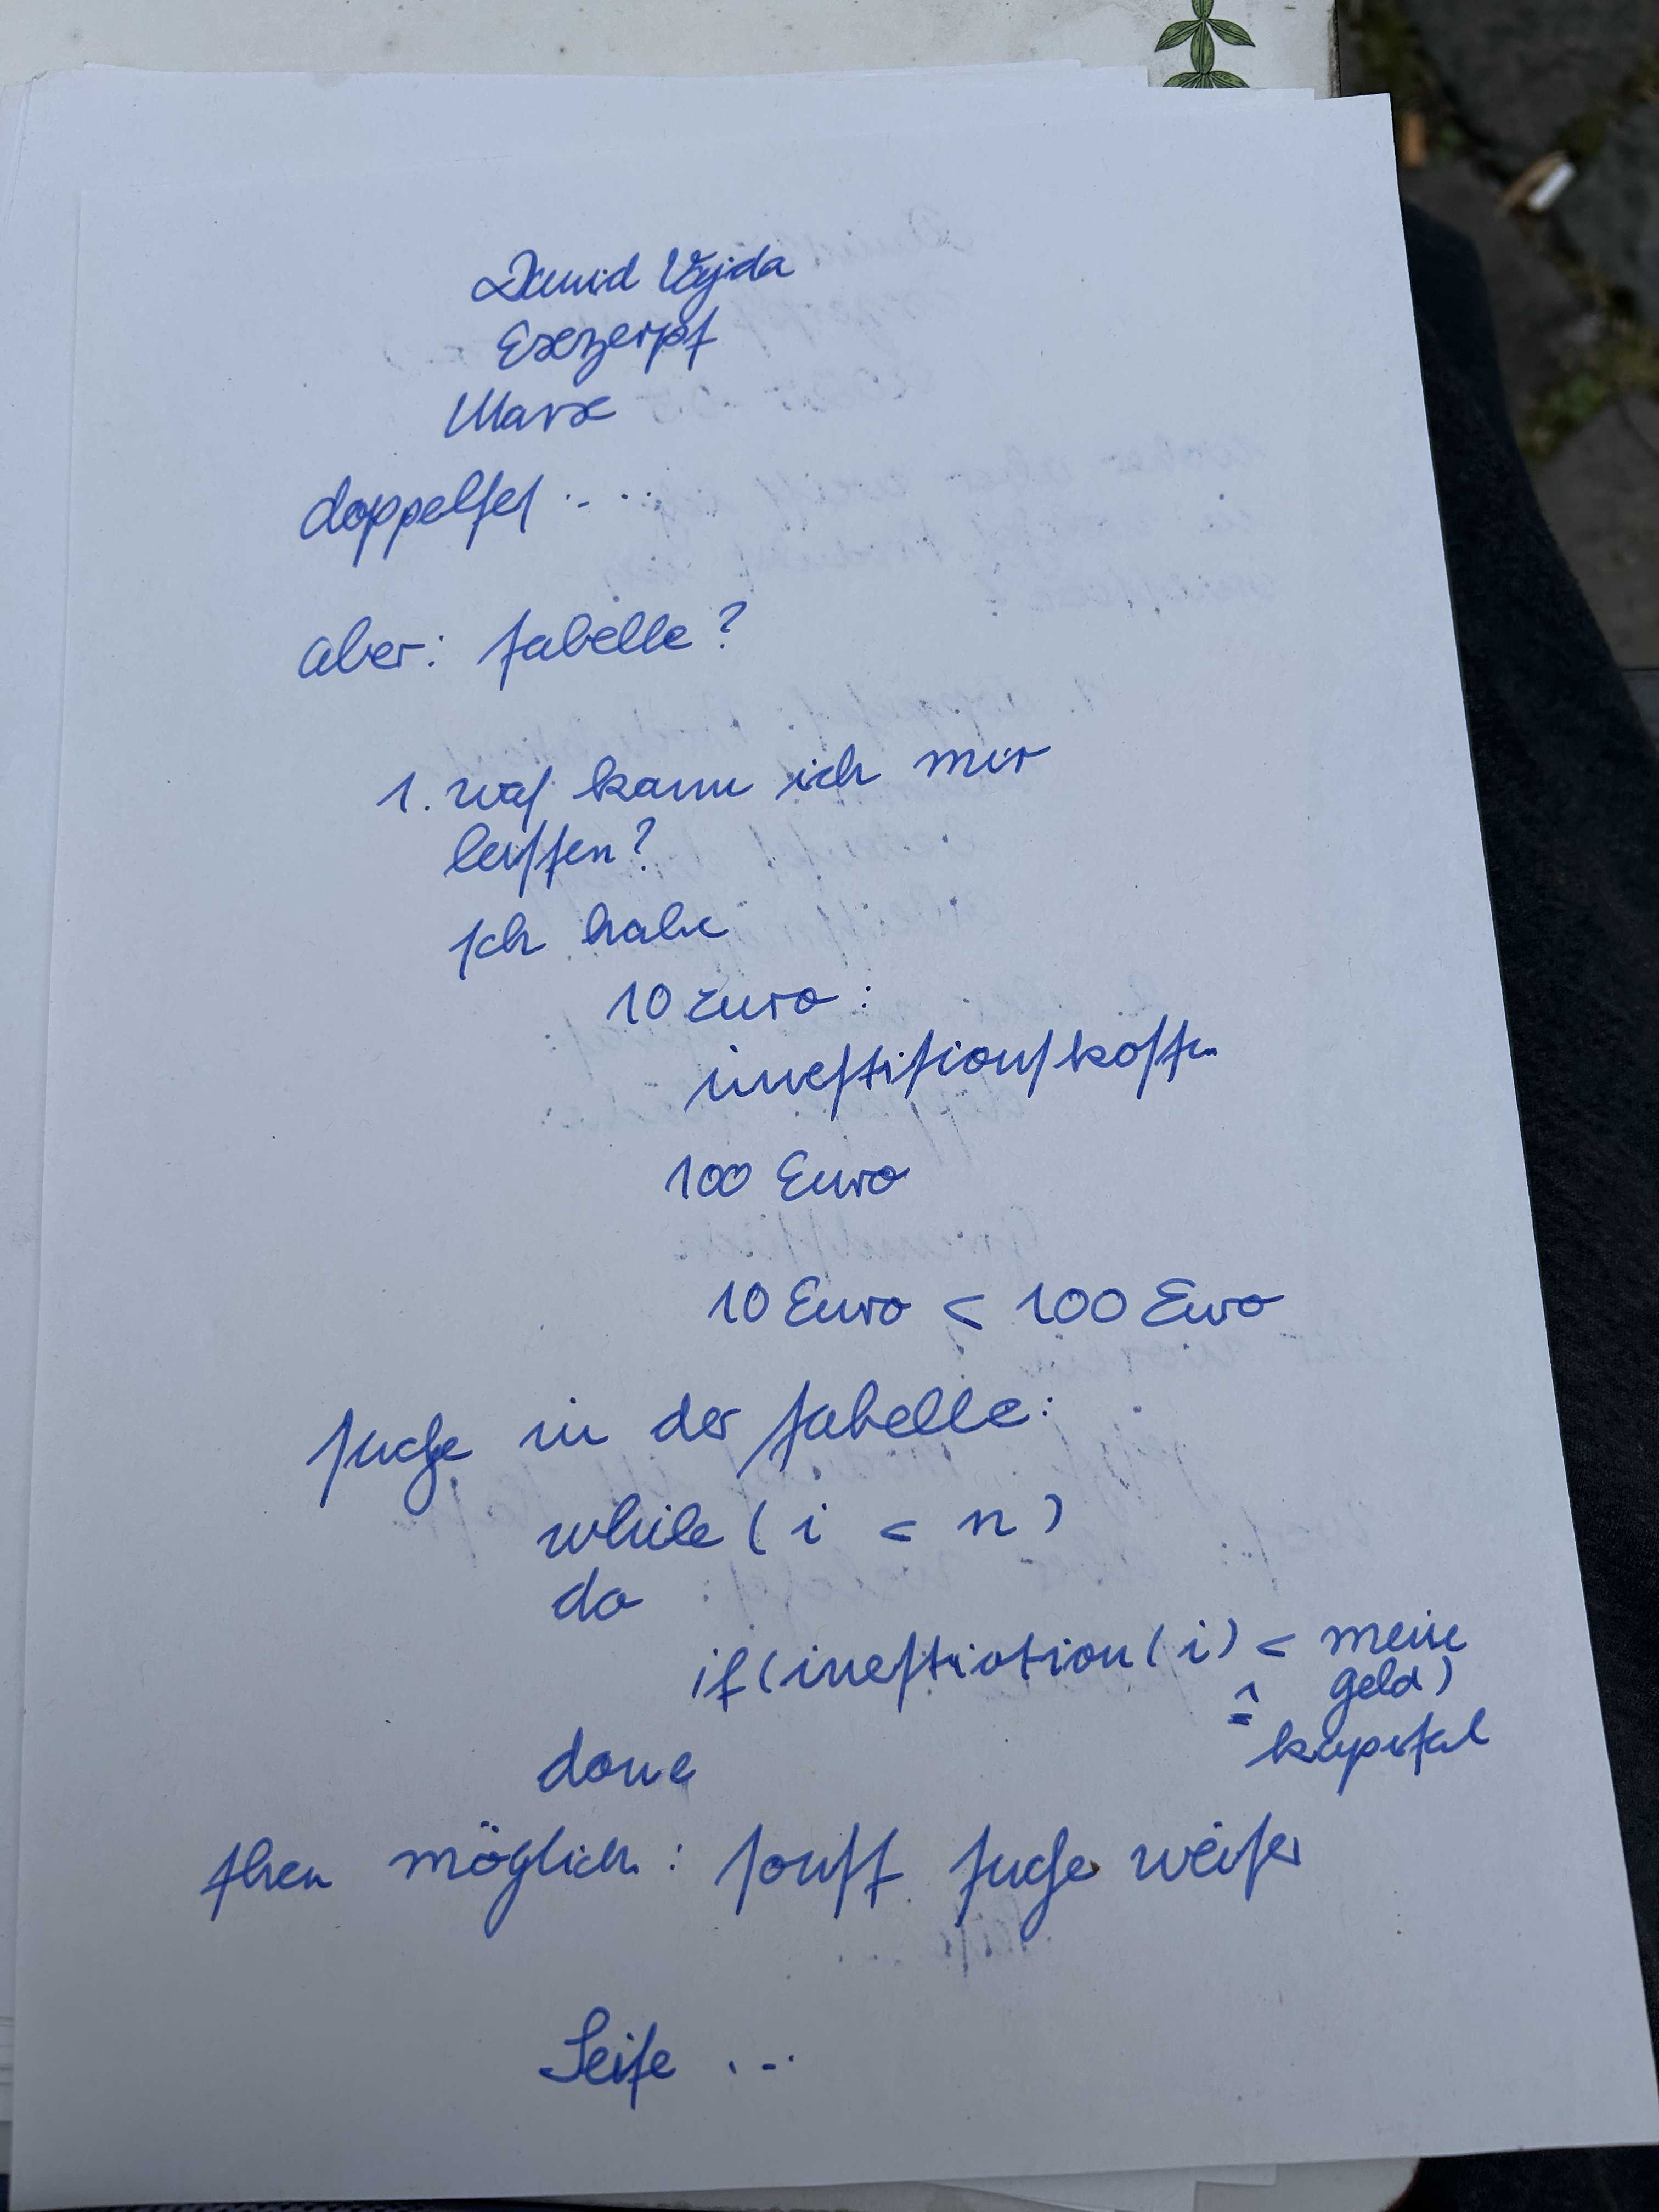 David Vajda
Exzerpt
Marx
doppeltes ....
aber: tabelle?
1. was kann ich mir
leisten?
Ich habe
10 Euro:
investitionskosten
100 Euro
10 Euro < 100 Euro
suche in der tabelle:
while ( i < n )
do
if (investiotion ( i ) < meine
geld)
≙ kapital
done
then möglich: sonst suche weiter
Seife ...